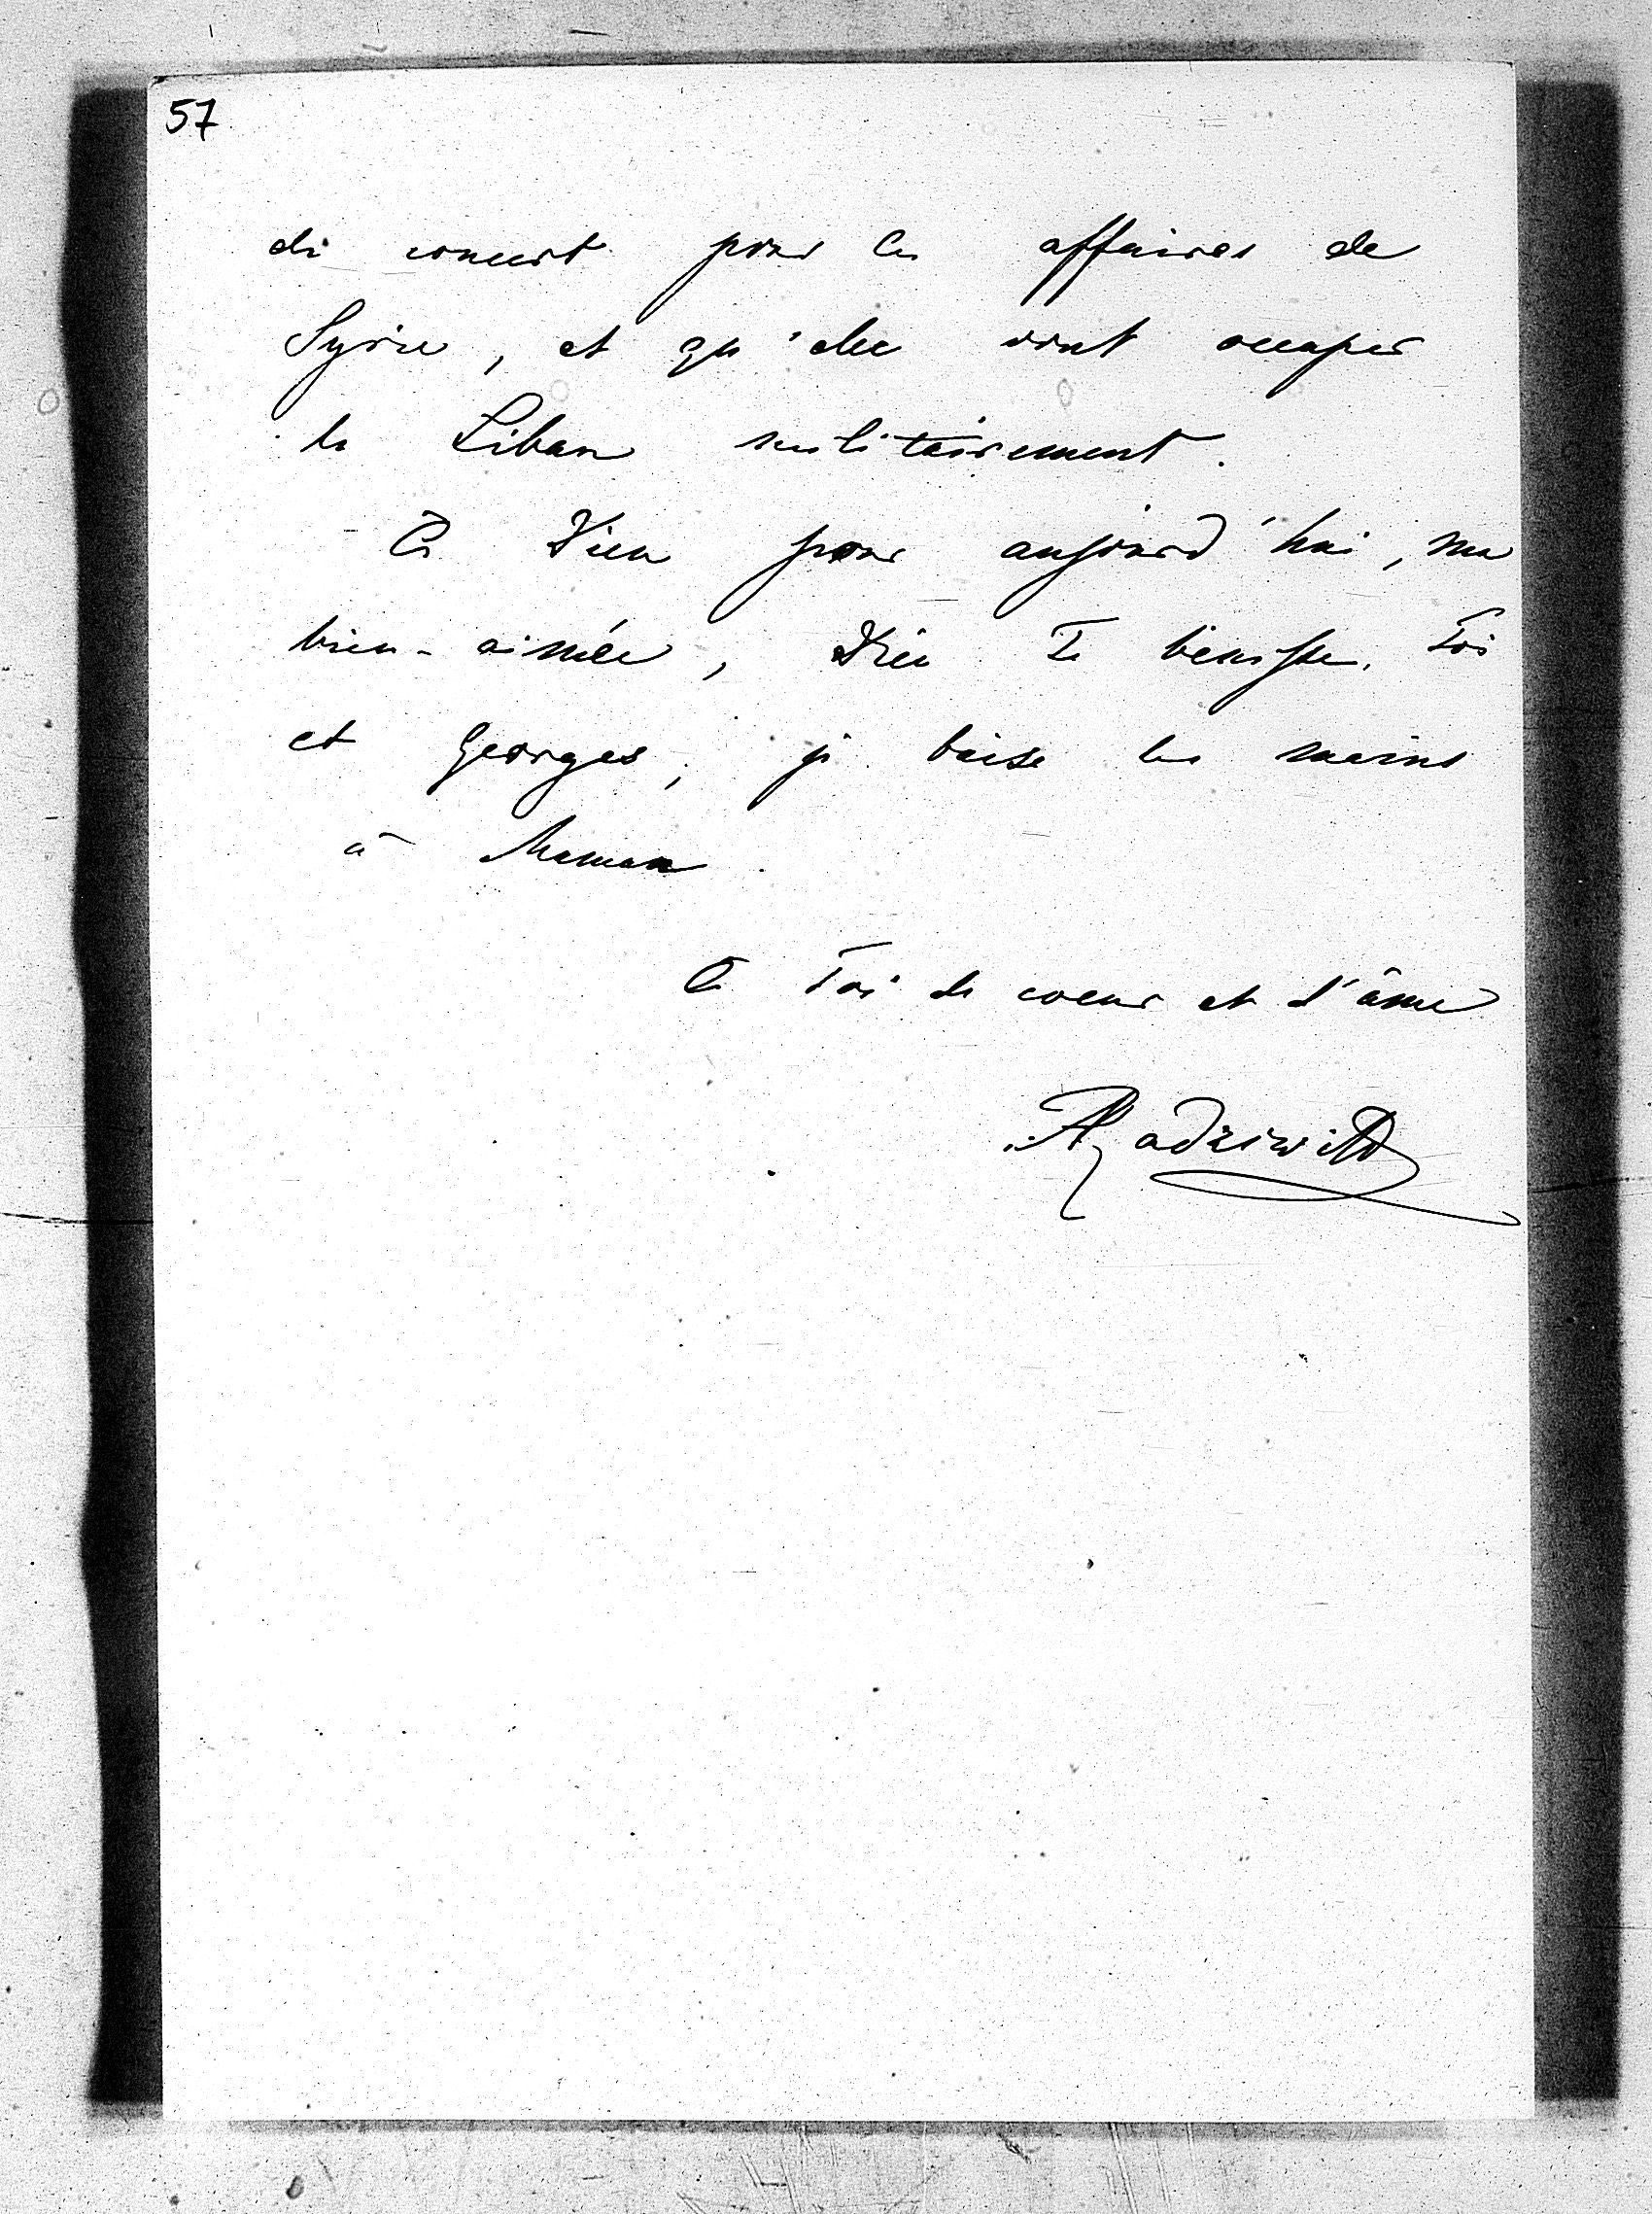 57
de concert pour les affaires de
Syrie, et qu'elles vont occuper
le Liban militairement.
À Dieu pour aujourd'hui, ma
bien-aimée, Dieu Te bénisse, Toi
et Georges, je baise les mains
à Maman.
À Toi de coeur et d'âme
ARadziwiłł